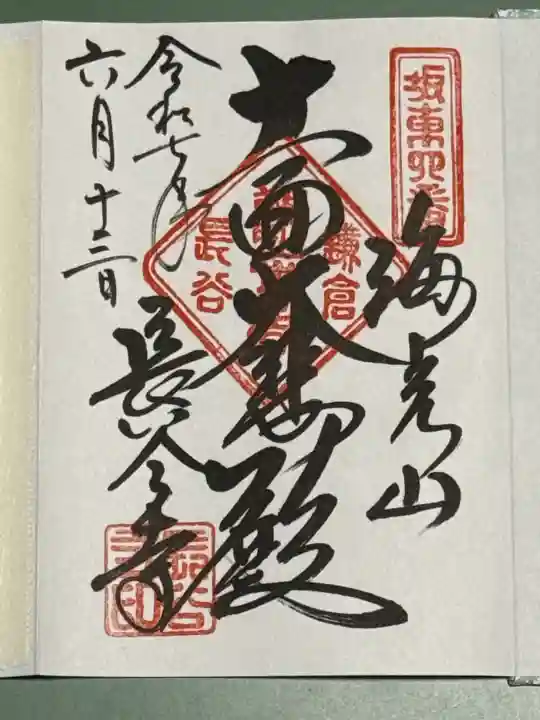 坂東四番
海光山
鎌倉
長谷
十一面大悲殿
長谷寺
令和七年
六月十三日
三宝印